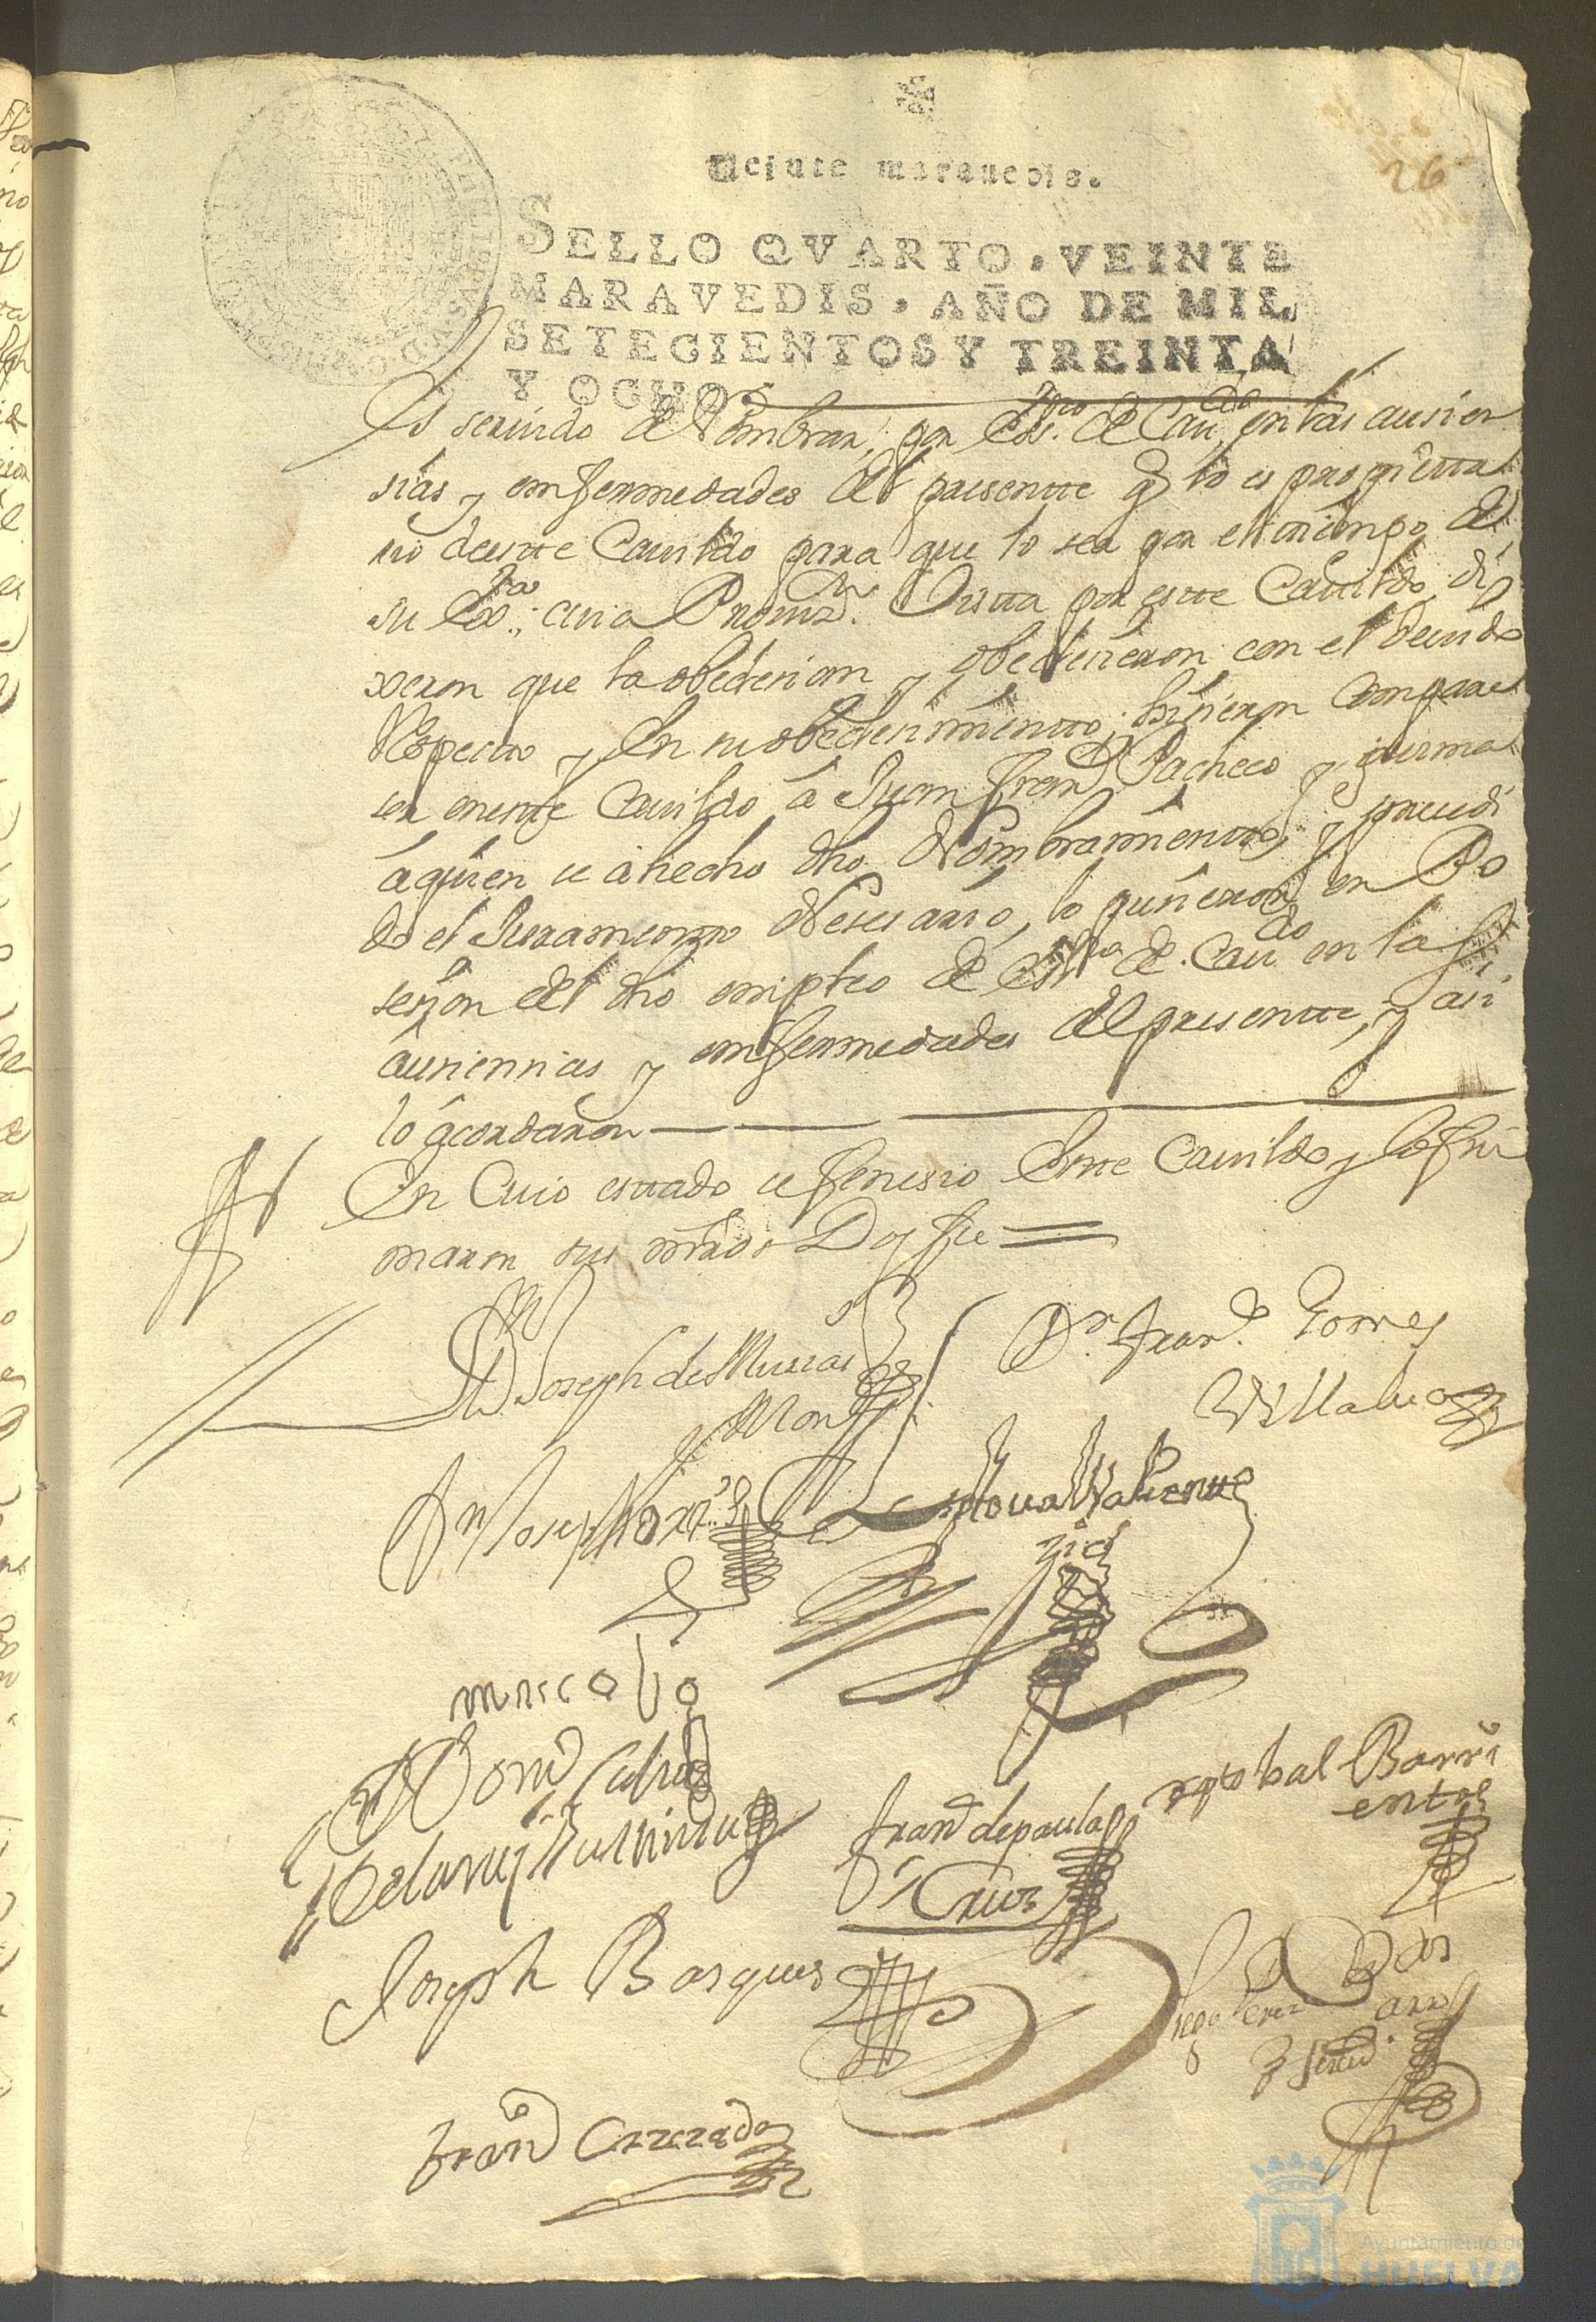 26
Veinte maravedis.
SELLO QVARTO, VEINTE
MARAVEDIS, AÑO DE MIL
SETECIENTOS Y TREINTA
Y OCHO.
Es seruido de Nombrar, por Essno. de Caudo. en las ausien
sias y emfermedades del presentte q lo es proprietta
rio deestte Cauildo para que lo sea por el tiempo de
su Exa. cuia Prouiza. Vistta por estte Cauildo di
xeron que la obedesian y obedesieron con el deuido
Respecto y En su obedesimientto, hisieron Compare
ser enestte Cauildo á Juan Frando Pacheco y
áquien se a hecho dho Nombramientto, y presedi
do el Juramentto Nesesario, lo pusieron en Po
sesion del dho empleo de Essno. de Caudo en las
áusiensias y emfermedades del presentte, y asi
lo ácordaron
En Cuio esttado se fenesio Estte Cauildo y lo fir
maron sus mrds Doy fee
Dn Joseph de
Dn. Frando. Torres
Villalua
Dn Joseph
Xptoual Valientte
Domo
Frando de paula
Cruz
xptobal Barri
entos
Joseph Basques
Diego Perez
Frando Quezada
Ayuntamiento de
HUELVA